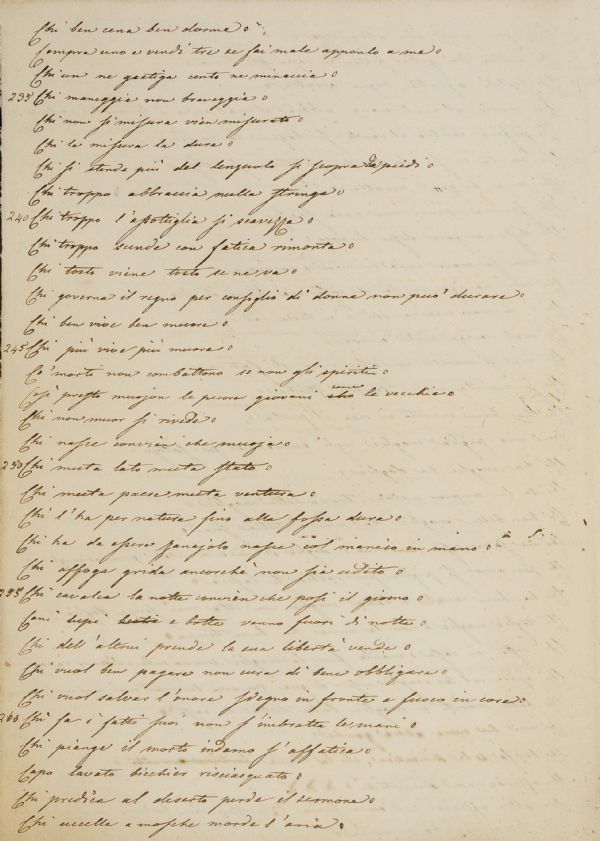 Chi ben cena ben dorme
Compra uno e vendi tre se fai male apponlo a me
Chi un ne gastiga cento ne minaccia
235 Chi maneggia non braveggia
Chi non si misura vien misurato
Chi la misura la dura
Chi si stende più del lenzuolo si scopra da' piedi
Chi troppo abbraccia nulla stringe
240 Chi troppo l'assottiglia si scavezza
Chi troppo scende con fatica rimonta
Chi tosto viene tosto se ne va
Chi governa il regno per consiglio di donna non può durare
Chi ben vive ben muore
245 Chi più vive più muore
Co' morti non combattono se non gli spiriti
Così presto muojon le pecore giovani come le vecchie
Chi non muor si rivede
Chi nasce convien che muoja
250 Chi muta lato muta stato
Chi muta paese muta ventura
Chi l'ha per natura fino alla fossa dura
Chi ha da essere zanajolo nasce col manico in mano
Chi affoga grida ancorchè non sia udito
255 Chi cavalca la notte convien che posi il giorno
Cani lupi e botte vanno fuori di notte
Chi dell'altrui prende la sua libertà vende
Chi vuol ben pagare non cura di bene obbligare
Chi vuol salvar l'onore sdegno in fronte e fuoco in core
260 Chi fa i fatti suoi non s'imbratta le mani
Chi piange il morto indarno s'affatica
Capo lavato bicchier risciacquato
Chi predica al deserto perde il sermone
Chi uccella a mosche morde l'aria